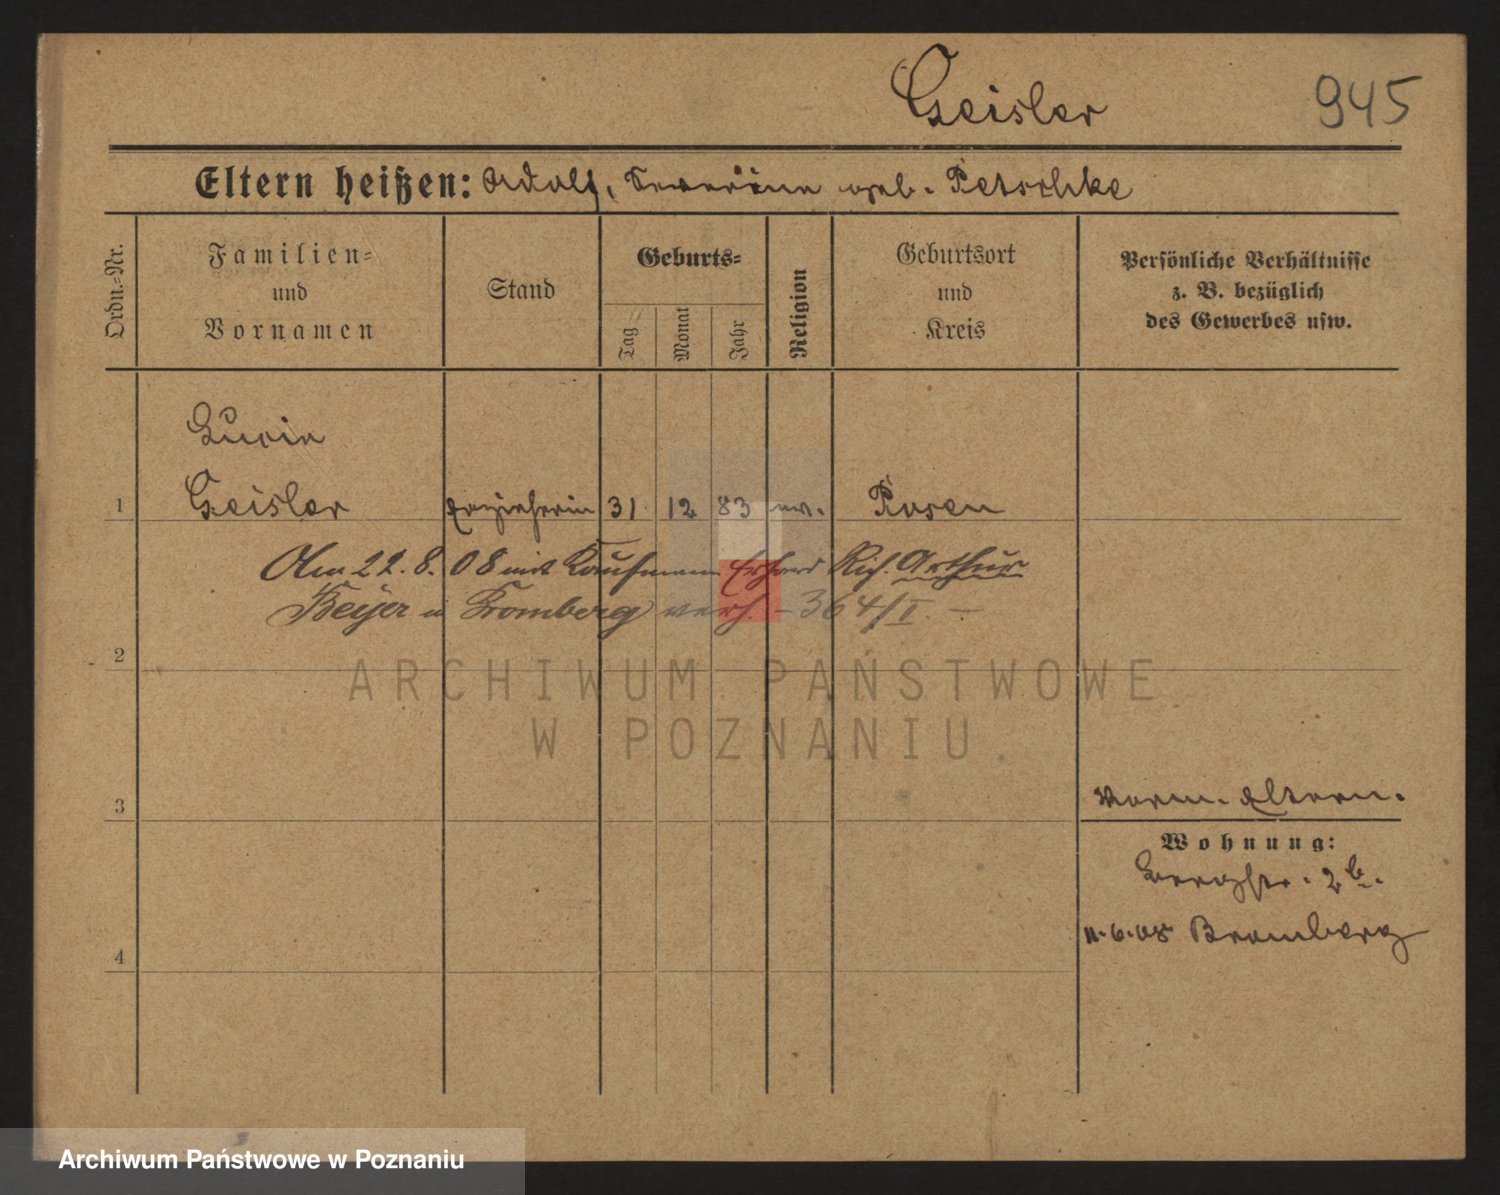 Geisler 945
Eltern heißen: Adolf, Severine geb. Petschke
Ordn.-Nr.
Familien-
und
Vornamen
Stand
Geburts-
Tag
Monat
Jahr
Religion
Geburtsort
und
Kreis
Persönliche Verhältnisse
z. B. bezüglich
des Gewerbes usw.
Lucie
1 Geisler Erzieherin 31 12 83 ev. Posen
Am 22. 8. 08 mit Kaufmann Erhard Rich. Arthur
Beyer in Bromberg verh. - 364/I. -
2
ARCHIWUM PAŃSTWOWE
W POZNANIU.
3 Eltern.
Wohnung:
2b.
11.6.08 Bromberg
4
Archiwum Państwowe w Poznaniu